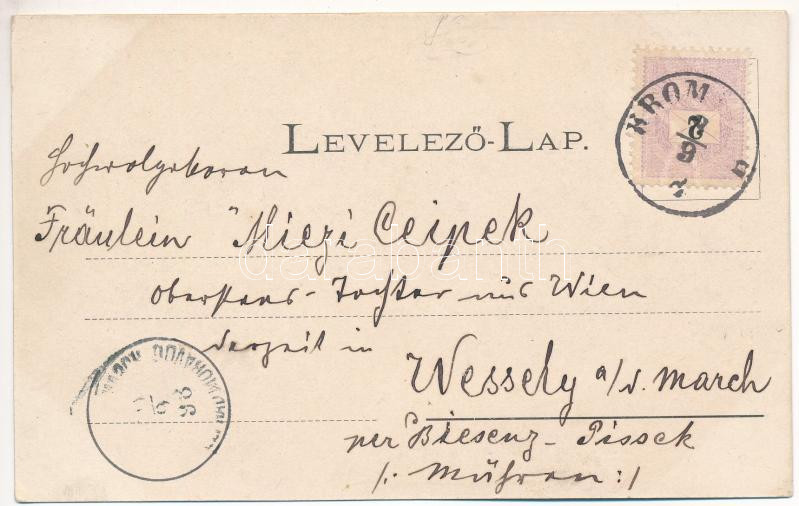 LEVELEZŐ-LAP.
KROM
Hochwolgeboren
Fräulein Miezi Ceipek
Oberstens-Tochter aus Wien
derzeit in
Wessely a/d. March
per Bisenz-Pissek
/: Mähren :/
darabanth
98